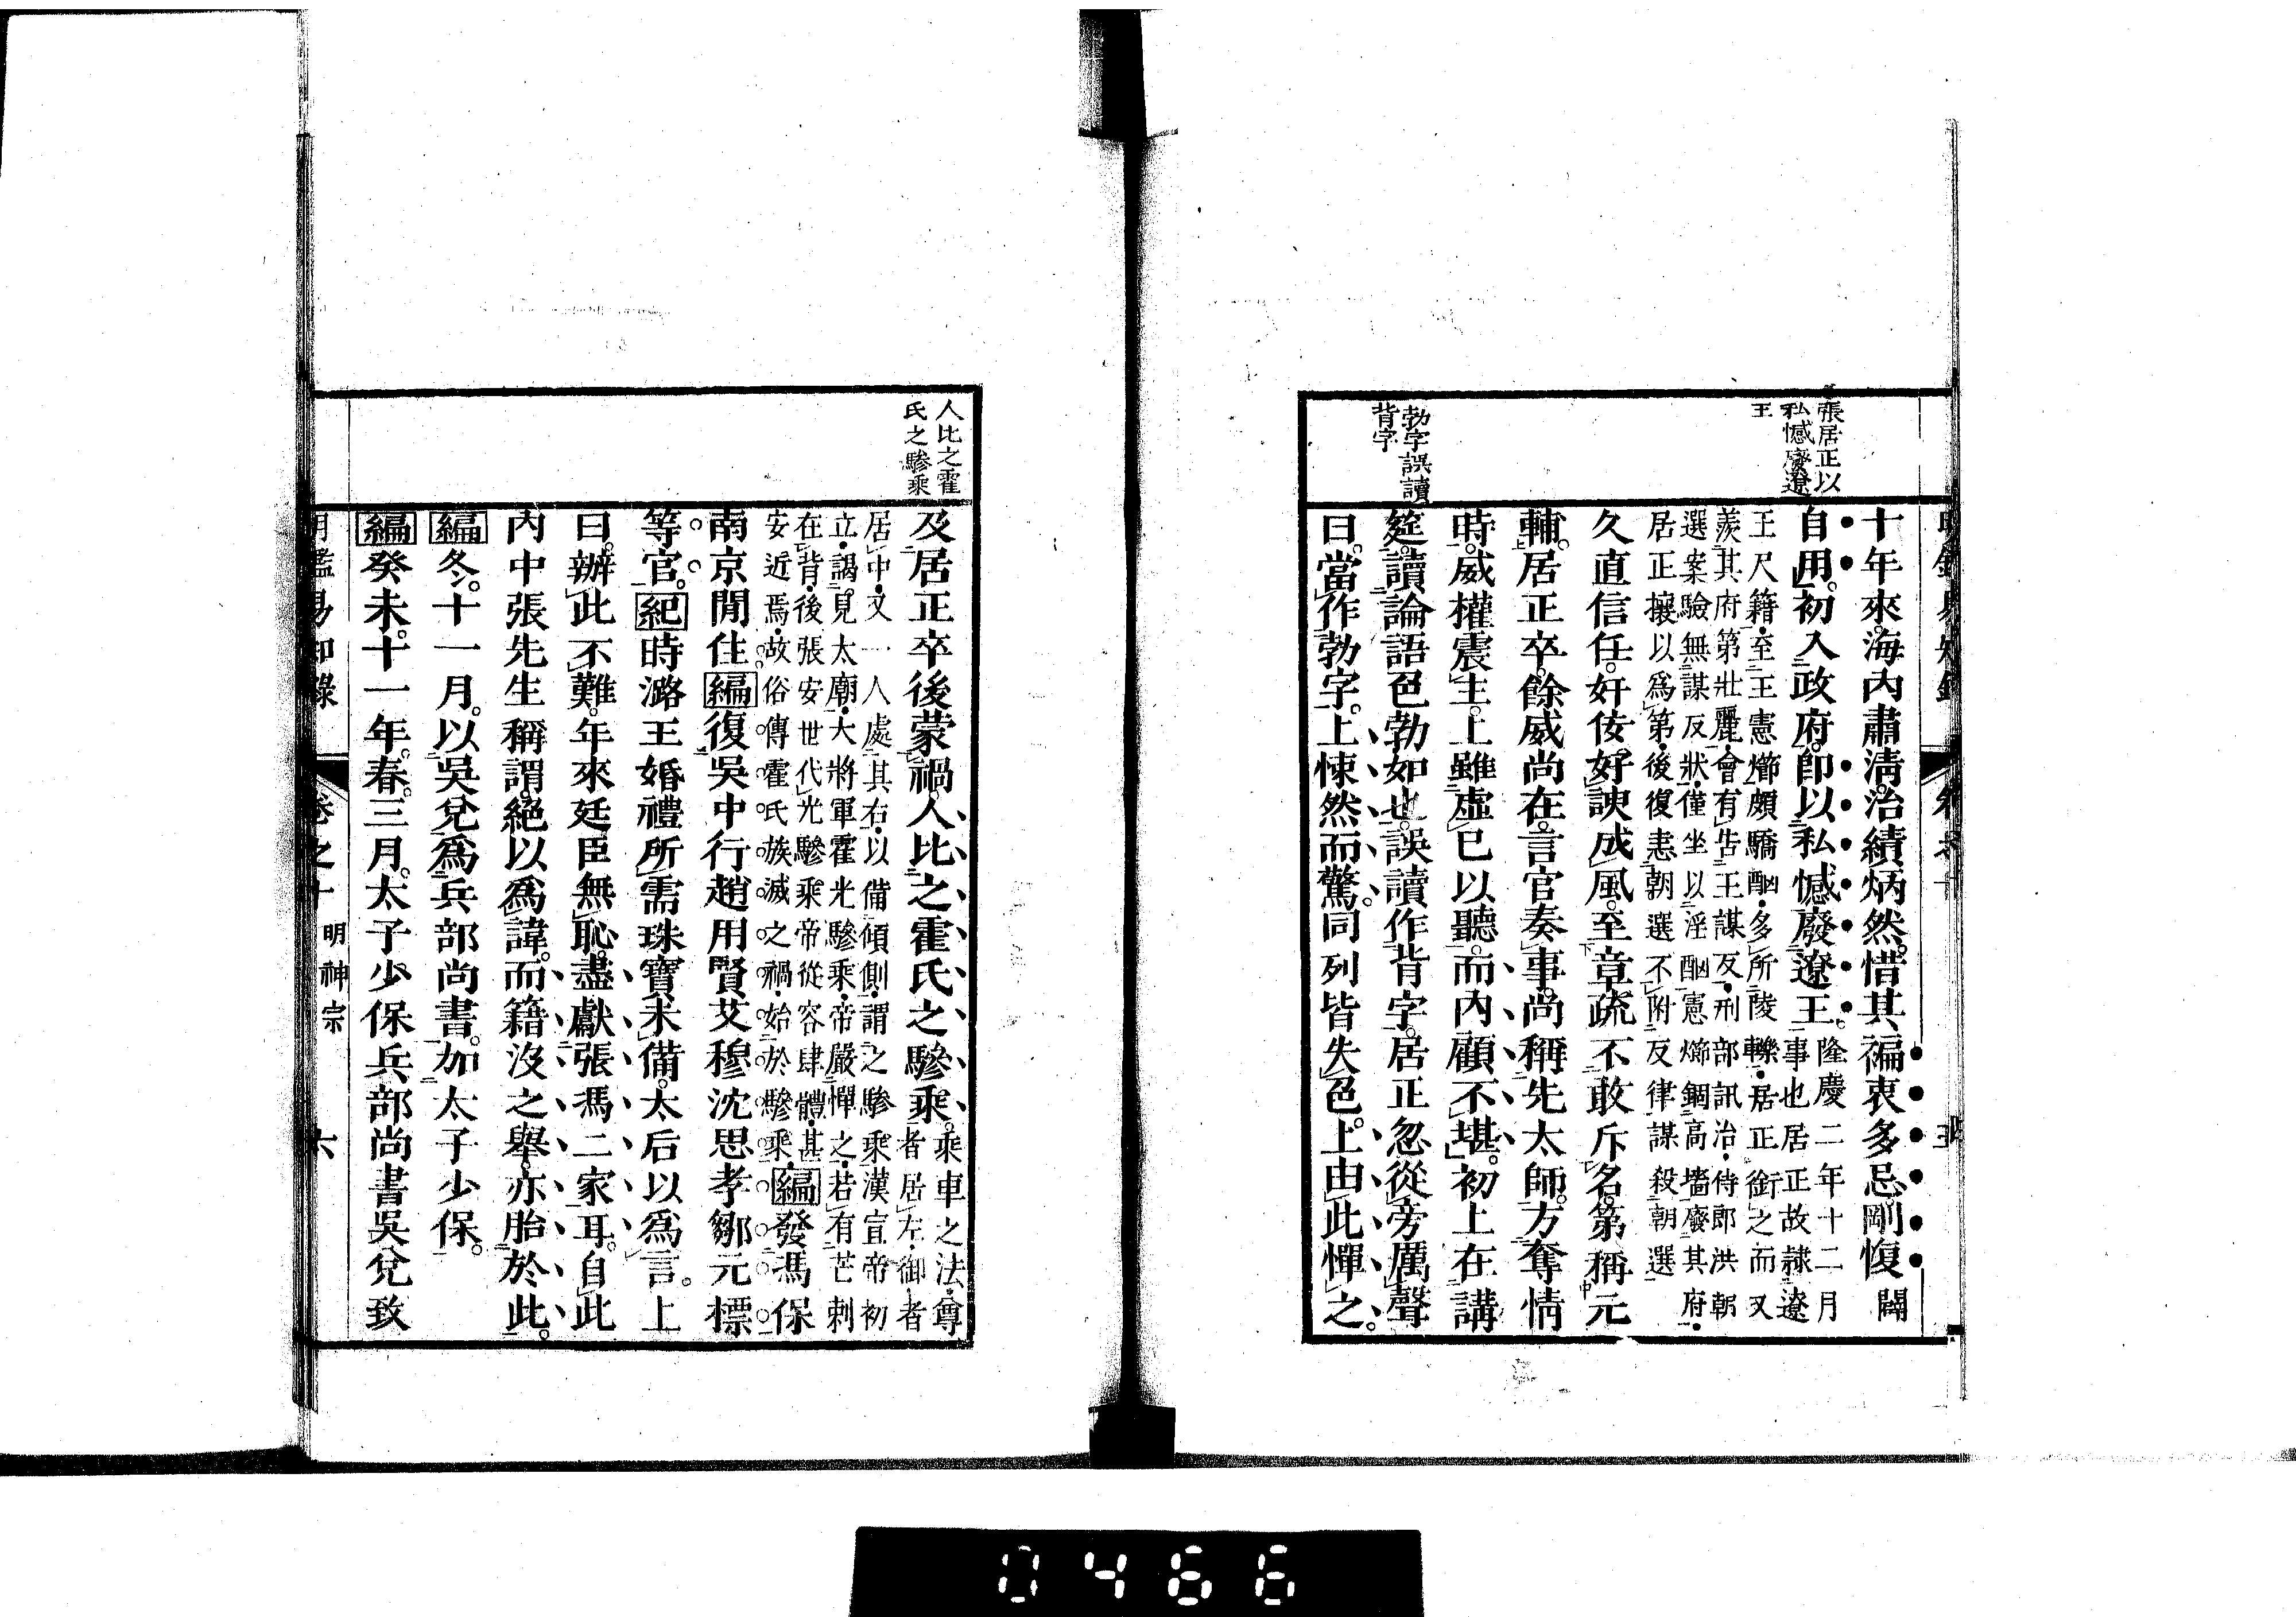 張居正以
私憾廢遼
王
勃字誤讀
背字
十年來海内肅淸治績炳然惜其褊衷多忌剛愎
自用初入政府卽以私憾廢遼王
隆慶二年十二月
事也居正故隷遼
王尺籍至王憲㸅頗驕酗多所陵轢居正銜之而又
羨其府第壯麗會有告王謀反刑部訊治侍郎洪朝
選案驗無謀反狀僅坐以淫酗憲㸅錮高墻廢其府
居正攘以爲第後復恚朝選不附反律謀殺朝選
久直信任奸佞好諛成風至章疏不敢斥名第稱元
輔居正卒餘威尚在言官奏事尚稱先太師方奪情
時威權震主上雖虛已以聽而内顧不堪初上在講
筵讀論語色勃如也誤讀作背字居正忽從旁厲聲
曰當作勃字上悚然而驚同列皆失色上由此憚之
人比之霍
氏之驂乘
及居正卒後蒙禍人比之霍氏之驂乘
乘車之法尊
者居左御者
居中又一人處其右以備傾側謂之驂乘漢宣帝初
立謁見太廟大將軍霍光驂乘帝嚴憚之若有芒刺
在背後張安世代光驂乘帝從容肆體甚
安近焉故俗傳霍氏族滅之禍始於驂乘
編發馮保
南京閒住編復吳中行趙用賢艾穆沈思孝鄒元標
等官紀時潞王婚禮所需珠寶未備太后以爲言上
曰辦此不難年來廷臣無恥盡獻張馮二家耳自此
内中張先生稱謂絕以爲諱而籍沒之舉亦胎於此
編冬十一月以吳兌爲兵部尚書加太子少保
編癸未十一年春三月太子少保兵部尚書吳兌致
明鑑易知錄 卷之十 明神宗 六
0466